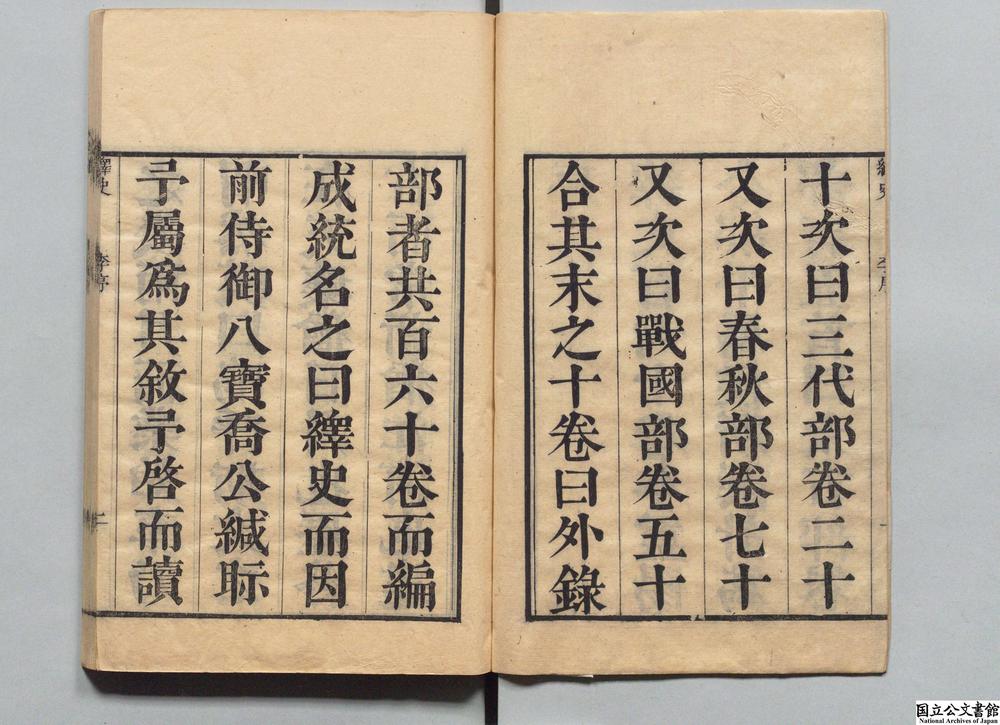 十次曰三代部卷二十
又次曰春秋部卷七十
又次曰戰國部卷五十
合其末之十卷曰外錄
部者共百六十卷而編
成統名之曰繹史而因
前侍御八寶喬公緘眎
予屬爲其敘予啓而讀
繹史 李序 二
国立公文書館
National Archives of Japan